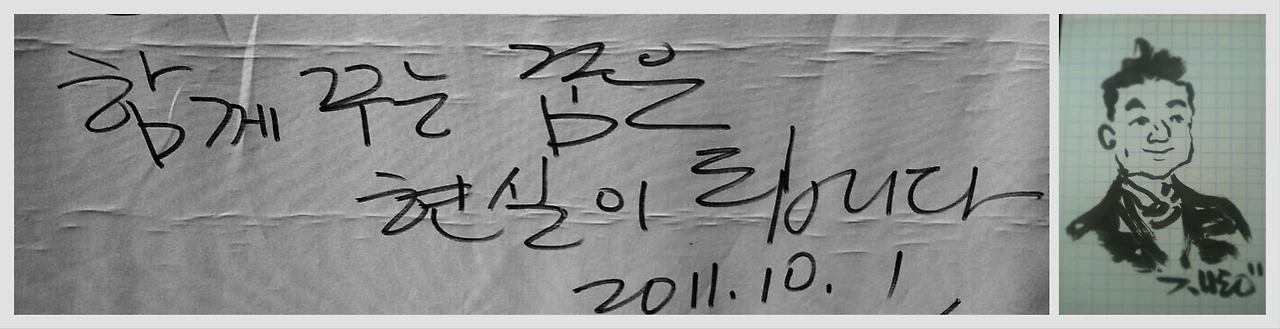 함께 꾸는 꿈은
현실이 됩니다
2011.10.1